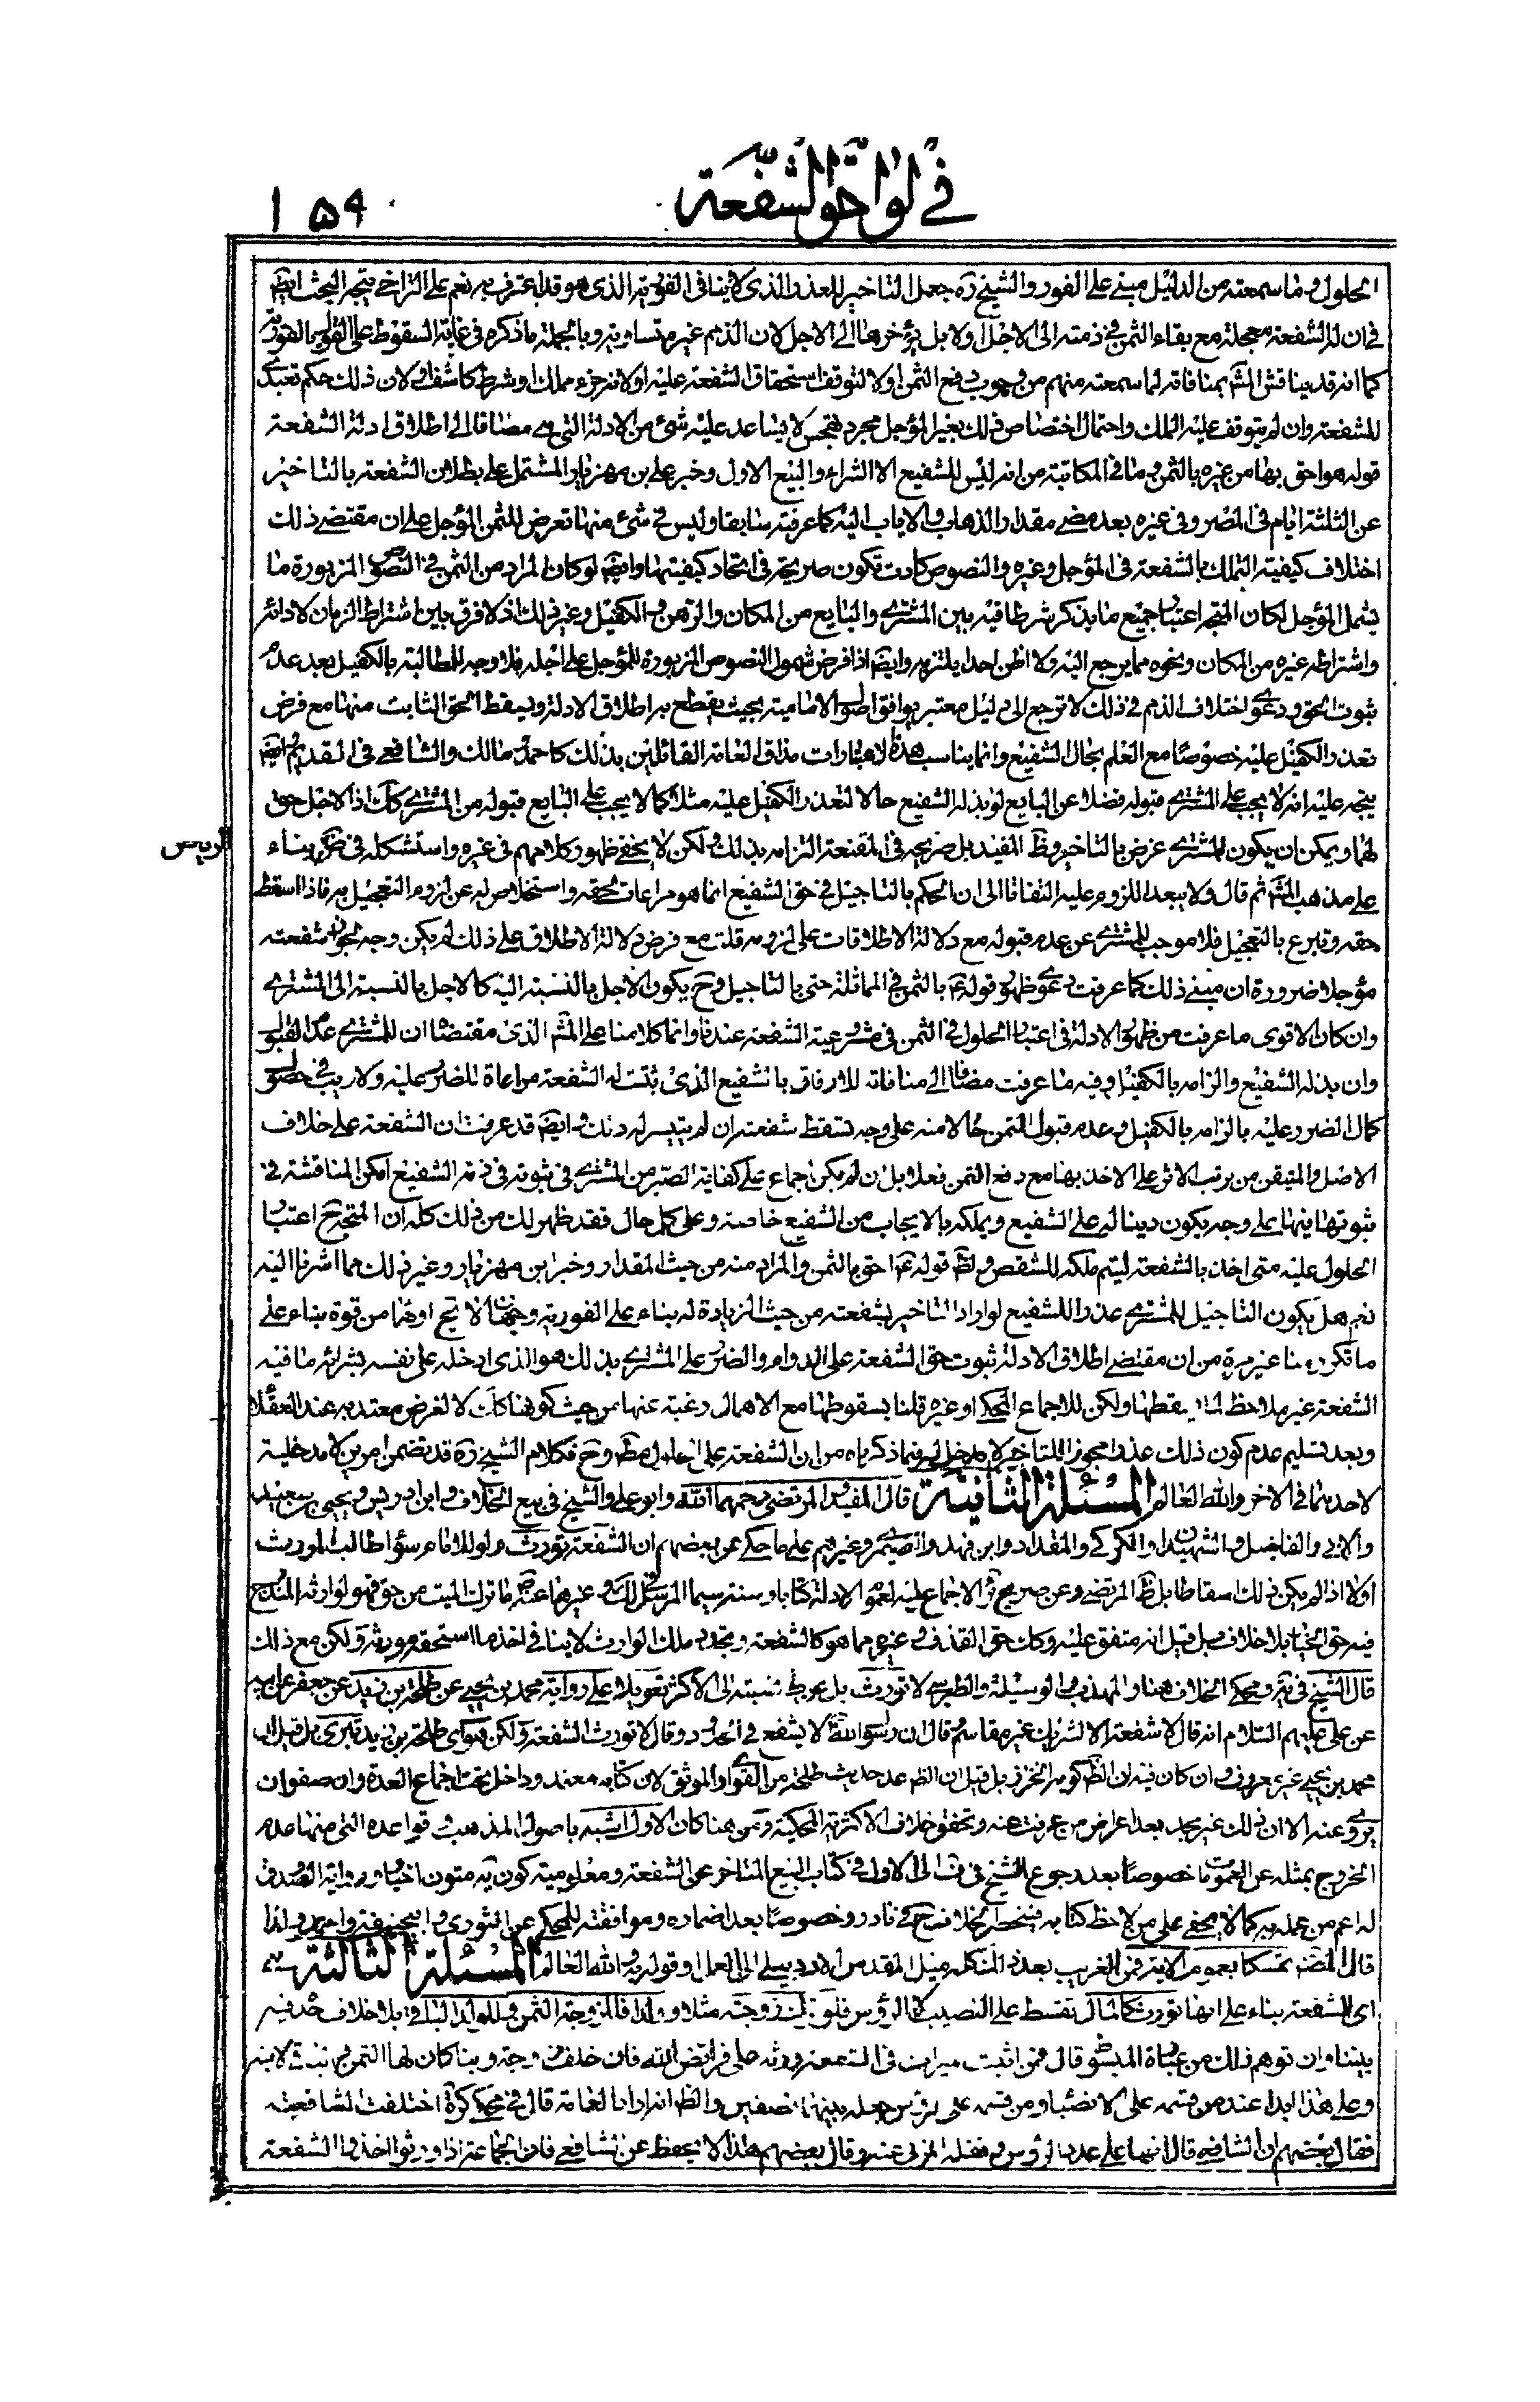 في لواحق الشفعة
١٥٤
الحلول وما سمعته من الدليل مبني على الفور والشيخ ره جعل التاخير للعذر الذي لا ينافي الفورية الذي هو قد اعترف به نعم على التراخي يتجه البحث ايضا
في ان له الشفعة معجلة مع بقاء الثمن في ذمته الى الاجل او لا بل يؤخرها الى الاجل لان الذمم غير متساوية وبالجملة ما ذكره في غاية السقوط على القول بالفورية
كما انه قد يناقش المش بمنافاته لما سمعته منهم من وجوب دفع الثمن اولا لتوقف استحقاق الشفعة عليه او لانه جزء مملك او شرط كاشف او لان ذلك حكم تعبدي
للشفعة وان لم يتوقف عليه الملك واحتمال اختصاص ذلك بغير المؤجل مجرد تهجس لا يساعد عليه شئ من الادلة التي هي مضافا الى اطلاق ادلة الشفعة
قوله هو احق بها من غيره بالثمن وما في المكاتبة من انه ليس للشفيع الا الشراء والبيع الاول وخبر علي بن مهزيار المشتمل على بطلان الشفعة بالتاخير
عن الثلثة ايام في المصر وفي غيره بعد مضي مقدار الذهاب والاياب اليه كما عرفته سابقا وليس في شئ منها تعرض للثمن المؤجل على ان مقتضى ذلك
اختلاف كيفية التملك بالشفعة في المؤجل وغيره والنصوص كادت تكون صريحة في اتحاد كيفيتها وايضا لو كان المراد من الثمن في النصوص المزبورة ما
يشمل المؤجل لكان المتجه اعتبار جميع ما يذكر شرطا فيه بين المشتري والبايع من المكان والرهن والكفيل وغير ذلك اذ لا فرق بين اشتراط الزمان للاداء
واشتراط غيره من المكان ونحوه مما يرجع اليه ولا اظن احدا يلتزمه وايضا اذا فرض شمول النصوص المزبورة للمؤجل على اجله فلا وجه للمطالبة بالكفيل بعد عدم
ثبوت الحق ودعوى اختلاف الذمم في ذلك لا ترجع الى دليل معتبر يوافق اصول الامامية بحيث يقطع به اطلاق الادلة ويسقط الحق الثابت منها مع فرض
تعذر الكفيل عليه خصوصا مع العلم بحال الشفيع وانما يناسب هذه الاعتبارات مذاق العامة القائلين بذلك كاحمد ومالك والشافعي في القديم وايضا
يتجه عليه انه لا يجب على المشتري قبوله فضلا عن البايع لو بذله الشفيع حالا لتعذر الكفيل عليه مثلا كما لا يجب على البايع قبوله من المشتري كك اذ الاجل حق
لهما ويمكن ان يكون للمشتري غرض بالتاخير وظ المفيد بل صريحه في المقنعة التزامه بذلك ولكن لا يخفى ظهور كلامهم في غيره واستشكله في بناء
على مذهب المش ثم قال ولا يبعد اللزوم عليه التفاتا الى ان الحكم بالتاجيل في حق الشفيع انما هو مراعات لحقه واستخلاص له عن لزوم التعجيل به فاذا اسقط
حقه وتبرع بالتعجيل فلا موجب للمشتري عن عدم قبوله مع دلالة الاطلاقات على لزومه قلت مع فرض دلالة الاطلاق على ذلك لم يكن وجه لجواز شفعته
مؤجلا ضرورة ان مبنى ذلك كما عرفت دعوى ظهور قوله بالثمن في المماثلة حتى بالتاجيل وح يكون الاجل بالنسبة اليه كالاجل بالنسبة الى المشتري
وان كان الاقوى ما عرفت من ظهور الادلة في اعتبار الحلول في الثمن في مشروعية الشفعة عندنا وانما كلامنا على المش الذي مقتضاه ان للمشتري عدم القبول
وان بذله الشفيع والزامه بالكفيل وفيه ما عرفت مضافا الى منافاته للارفاق بالشفيع الذي ثبتت له الشفعة مراعاة للضرر عليه ولا ريب في حصول
كمال الضرر عليه بالزامه بالكفيل وعدم قبول الثمن حالا منه على وجه تسقط شفعته ان لم يتيسر له ذلك وايضا قد عرفت ان الشفعة على خلاف
الاصل والمتيقن من ترتب الاثر على الاخذ بها مع دفع الثمن فعلا بل ان لم يكن اجماع على كفاية الصبر من المشتري في ثبوته في ذمة الشفيع امكن المناقشة في
ثبوتها فيها على وجه يكون دينا له على الشفيع ويملكه بالايجاب من الشفيع خاصة وعلى كل حال فقد ظهر لك من ذلك كله ان المتجه ح اعتبار
الحلول عليه متى اخذ بالشفعة ليتم ملكه للشقص ولظ قوله احق بالثمن والمراد منه من حيث المقدار وخبر ابن مهزيار وغير ذلك مما اشرنا اليه
نعم هل يكون التاجيل للمشتري عذرا للشفيع لو اراد التاخير بشفعته من حيث الزيادة له بناء على الفورية وجهان لا يخ اولهما من قوة بناء على
ما تكرر منا غير مرة من ان مقتضى اطلاق الادلة ثبوت حق الشفعة على الدوام والضرر على المشتري بذلك هو الذي ادخله على نفسه بشرائه ما فيه
الشفعة غير ملاحظ لما يسقطها ولكن للاجماع المحكي او غيره قلنا بسقوطها مع الاهمال رغبة عنها من حيث كونها كك لا لغرض معتد به عند العقلاء
وبعد تسليم عدم كون ذلك عذرا مجوزا للتاخير لا مدخل له فيما ذكرناه من ان الشفعة على الحلول مط وح فكلام الشيخ ره قد تضمن امرين لا مدخلية
لاحدهما في الاخر والله العالم المسئلة الثانية قال المفيد والمرتضى رحمهما الله وابو علي والشيخ في بيع الخلاف وابن ادريس ويحيى بن سعيد
والابي والفاضل والشهيدان والكركي والمقداد وابن فهد والصيمري وغيرهم على ما حكي عن بعضهم ان الشفعة تورث ولو للامام سواء طالب المورث
اولا اذا لم يكن ذلك اسقاطا بل ظ المرتضى وعن صريح ئر الاجماع عليه لعموم الادلة كتابا وسنة سيما المرسل في لك وغيرها عنه ما ترك الميت من حق فهو لوارثه المندرج
فيه حق الخيار بلا خلاف بل قيل انه متفق عليه وكك حق القذف وغيره مما هو كالشفعة وتجدد ملك الوارث لا ينافي اخذ ما استحقه مورثه ولكن مع ذلك
قال الشيخ في ية ومحكي الخلاف هنا والمهذب والوسيلة والطبرسي لا تورث بل عن ط نسبته الى الاكثر تعويلا على رواية محمد بن يحيى عن طلحة بن زيد عن جعفر عن ابيه
عن علي عليهم السلام انه قال لا شفعة الا لشريك غير مقاسم وقال ان رسول الله لا يشفع في الحدود وقال لا تورث الشفعة ولكن هو اي طلحة بن زيد تبري بل قيل ان
محمد بن يحيى غير معروف وان كان فيه ان الظ كونه الخزاز بل قيل ان الظ عد حديث طلحة من القوي او الموثق لان كتابه معتمد وداخل تحت اجماع العدة وان صفوان
يروي عنه الا ان ذلك غير مجد بعد اعراض من عرفت عنه وتحقق خلاف الاكثرية المحكية ومن هنا كان الاول اشبه باصول المذهب وقواعده التي منها عدم
الخروج بمثله عن العمومات خصوصا بعد رجوع الشيخ في ف الى الاول في كتاب البيع المتاخر عن الشفعة ومعلومية كون ية متون اخبار ورواية الصدوق
له اعم من عمله به كما لا يخفى على من لاحظ كتابه فينحصر الخلاف ح في نادر وخصوصا بعد اضماره وموافقته للمحكي عن الثوري وابي حنيفة واحمد ولذا
قال المص تمسكا بعموم الاية فمن الغريب بعد ذلك كله ميل المقدس الاردبيلي الى العمل او قوله به والله العالم المسئلة الثالثة هي
اي الشفعة بناء على انها تورث كالمال تقسط على النصيب لا الرؤس فلو ترك زوجة مثلا وولدا فللزوجة الثمن وللولد الباقي بلا خلاف اجده فيه
بيننا وان توهم ذلك من عبارة المبسوط قال فمن اثبت ميراث في الشفعة ورثه على فرائض الله فان خلف زوجة وابنا كان لها الثمن والباقي لابنه
وعلى هذا ابدا عند من قسمه على الانصباء ومن قسمه على الرؤس جعله بينهما نصفين والظ انه اراد العامة قال في محكي كرة اختلفت الشافعية
فقال بعضهم ان الشافعي قال انها على عدد الرؤس ونقله المزني عنه وقال بعضهم هذا لا يحفظ عن الشافعي فان الجماعة اذا ورثوا اخذوا الشفعة